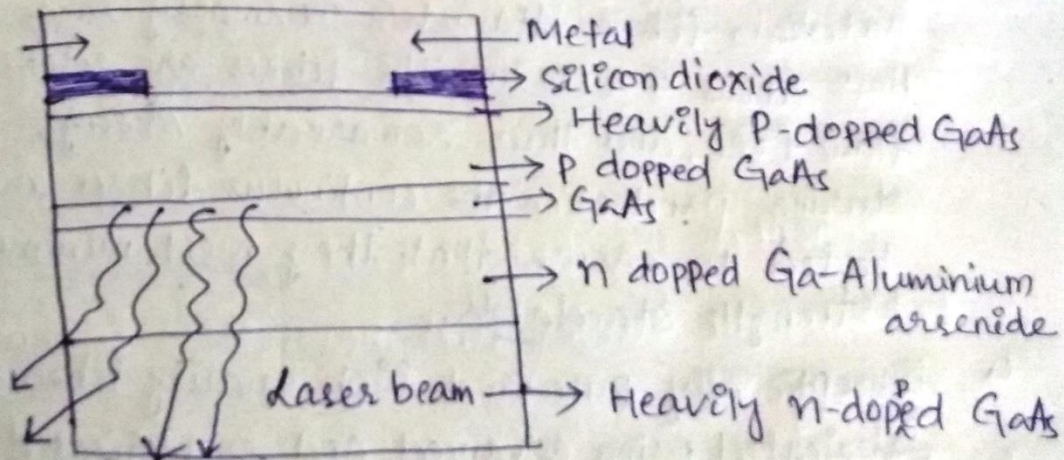 Metal
silicon dioxide
Heavily P-dopped GaAs
P dopped GaAs
GaAs
n dopped Ga-Aluminium
arsenide
Laser beam
Heavily n-dopped GaAs